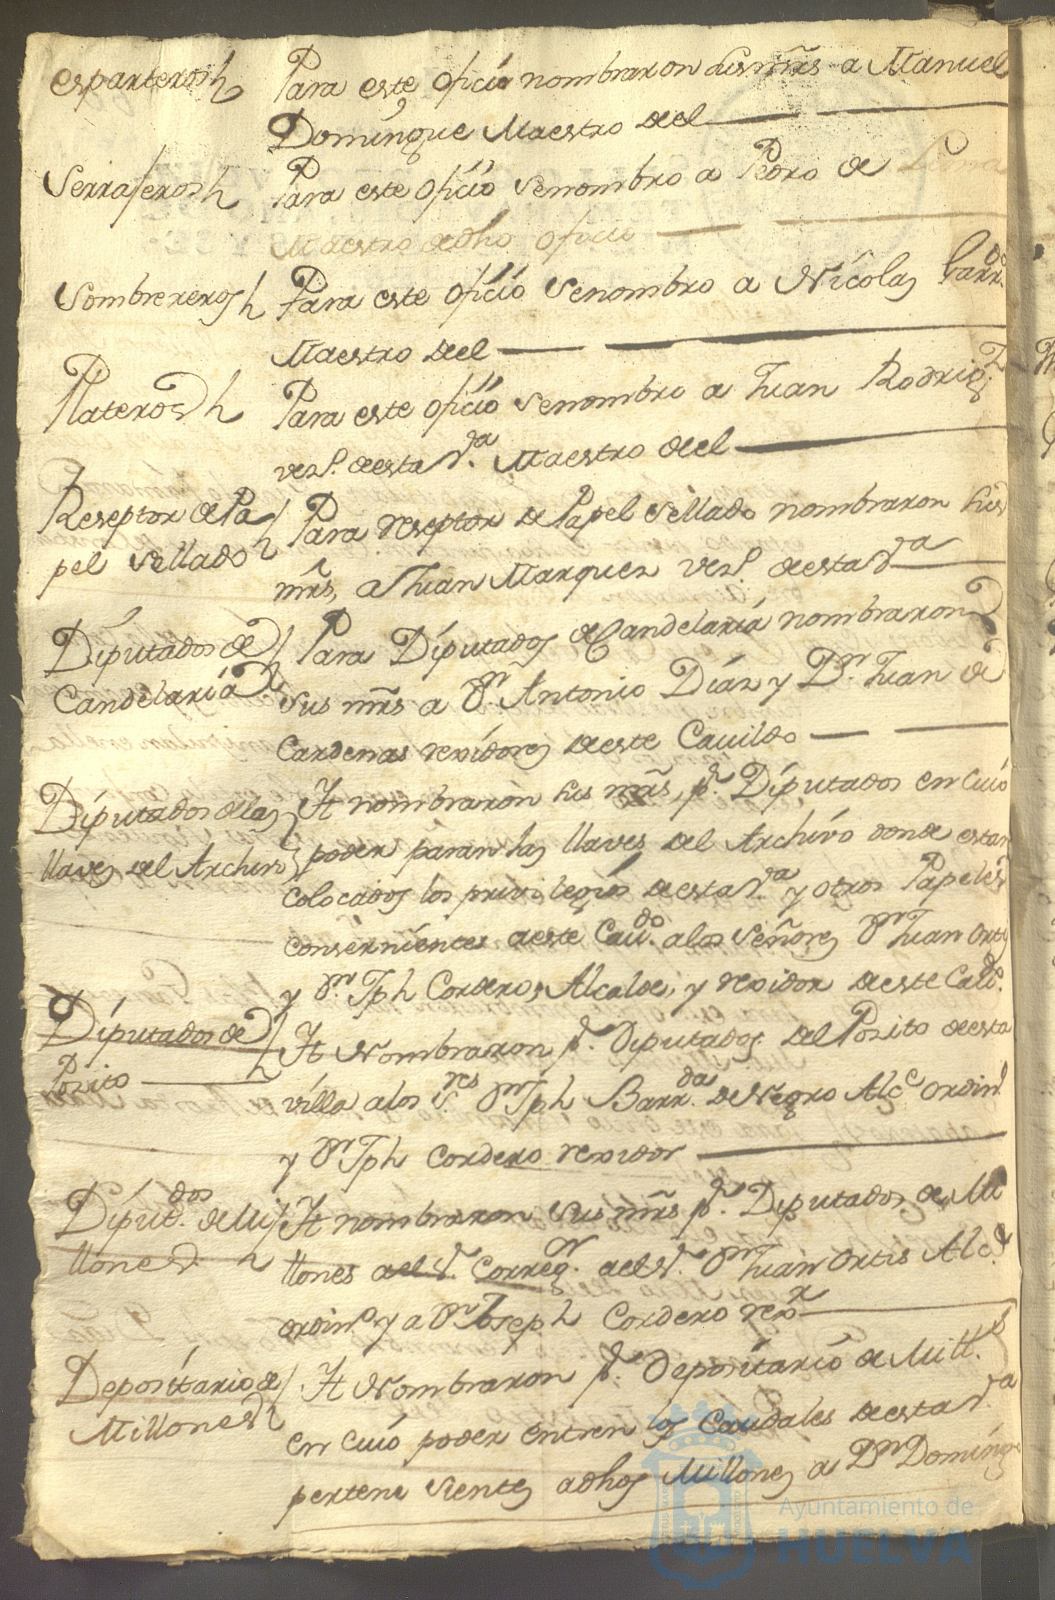 esparteros Para este oficio nombraron dis mrs a Manuel
Domingue Maestro del
Serrajeros Para este oficio se nombro a Pedro de
Maestro de dho oficio
Sombrereros Para este oficio se nombro a Nicolas Barr.do
Maestro del
Plateros Para este oficio se nombro a Juan Rodrig.z
vez.o de esta V.a Maestro del
Reseptor de Pa Para reseptor de Papel sellado nombraron sus
pel sellado mrs a Juan Marquez vez.o de esta V.a
Diputados de Para Diputados de Candelaria nombraron
Candelaria sus mrs a D.n Antonio Dias y D.n Juan de
Cardenas rexidores de este Cauildo
Diputados de las It nombraron sus mrs p.r Diputados en cuio
llaves del Archivo poder paran las llaves del Archivo donde estan
colocados los privilegios de esta V.a y otros Papeles
consernientes a este Cau.do a los Señores D.n Juan Ortis
y D.n Jph Cordero, Alcalde, y rexidor de este Cau.do
Diputados de It Nombraron p.r Diputados del Posito de esta
Posito villa a los S.res D.n Jph Barr.da de Negro Alc.e ordin.o
y D.n Jph Cordero rexidor
Diput.dos de Mi It nombraron sus mrs p.r Diputados de Mi
llones llones al S.r Correg.or al S.r D.n Juan Ortis Alc.e
ordin.o y a D.n Joseph Cordero rex.r
Depositario de It Nombraron p.r Depositario de Mill.s
Millones en cuio poder entren los Caudales de esta V.a
pertenesientes a dhos Millones a D.n Doming
Ayuntamiento de
HUELVA